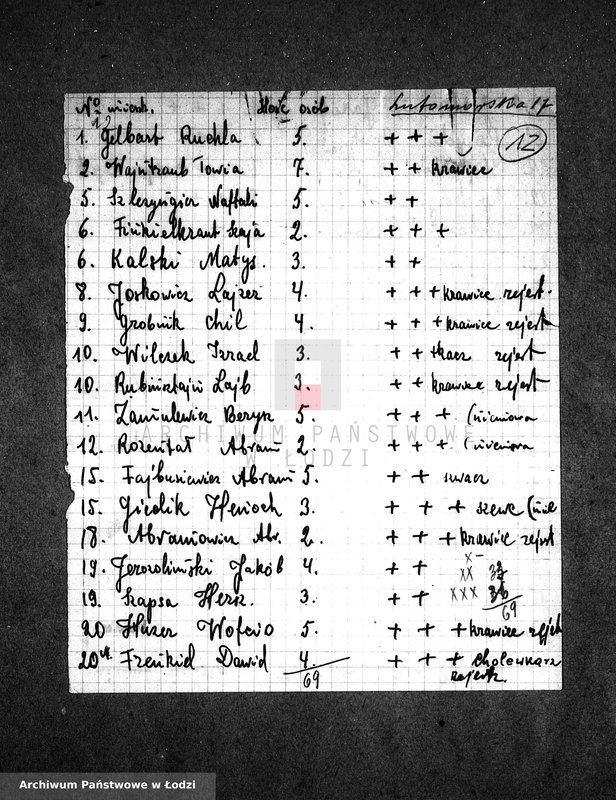 No mieszk. Ilość osób Lutomierska 17
12
1. Gelbart Ruchla 5. + + +
2. Wajntraub Towia 7. + + krawiec
5. Szlezyngier Naftali 5. + +
6. Finkielkraut Szaja 2. + + +
6. Kalski Matys. 3. + +
8. Joskowicz Lajzer 4. + + + krawiec rejest.
9. Grobnik Chil 4. + + + krawiec rejest
10. Wilczek Izrael 3. + + tkacz rejest
10. Rubinsztajn Lajb 3. + + krawiec rejest
11. Zamulewicz Berysz 5. + + +
12. Rozental Abram 2. + + +
15. Fajbusiewicz Abram 5. + + szwacz
15. Gindik Henoch 3. + + + szewc
18. Abramowicz Abr. 2. + + + krawiec rejest
x -
19. Jerozolimski Jakób 4. + + xx
19. Szapsa Hersz. 3. + + xxx 36
69
20 Huzer Wolcio 5. + + + krawiec rejest
20 Frenkiel Dawid 4. + + + cholewkarz
rejestr.
69
ARCHIWUM PAŃSTWOWE
W ŁODZI
Archiwum Państwowe w Łodzi